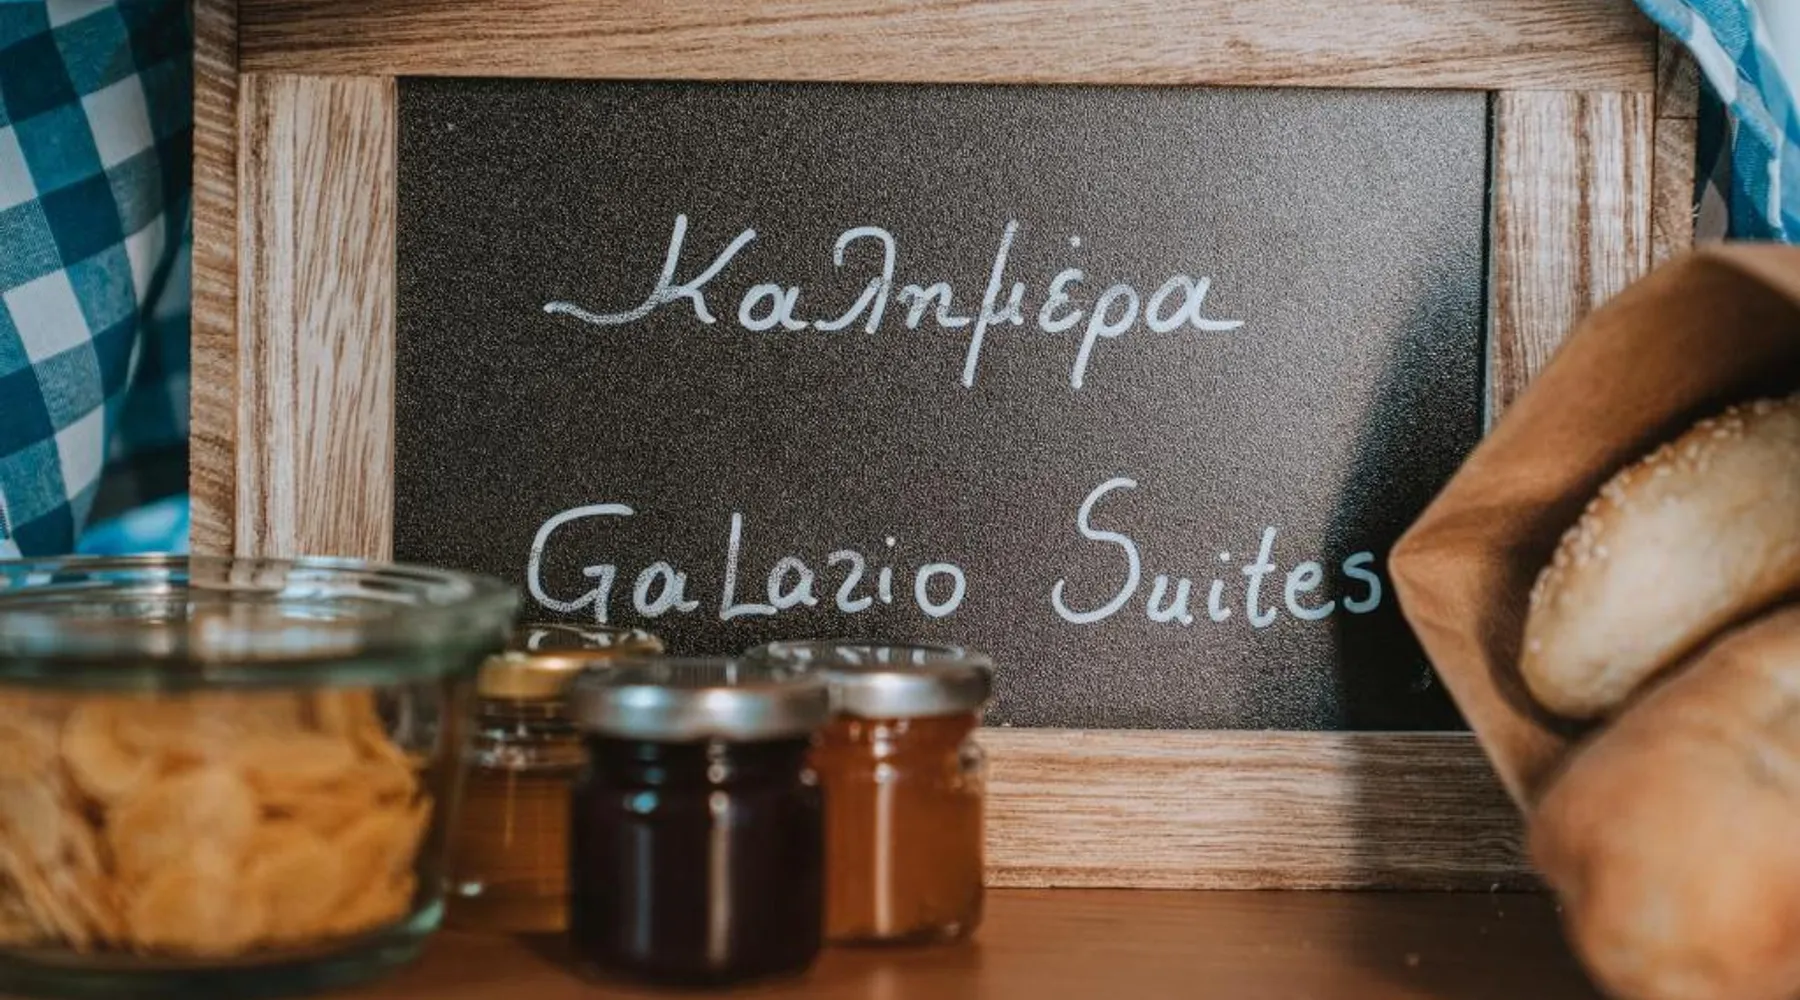 Καλημέρα
GaLazio Suites